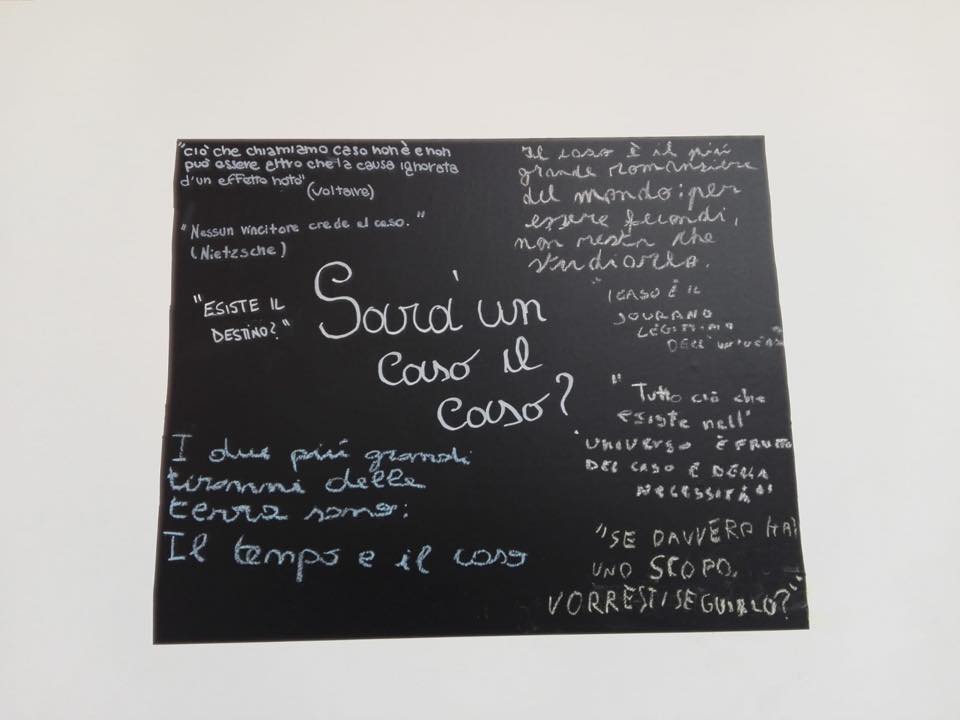 "Ciò che chiamiamo caso non è e non
può essere altro che la causa ignorata
d'un effetto noto"
(Voltaire)
"Nessun vincitore crede al caso."
(Nietzsche)
"ESISTE IL
DESTINO?"
Sarà un
caso il
caso?
I due più grandi
tiranni della
terra sono:
Il tempo e il caso
Il caso è il più
grande romanziere
del mondo; per
essere fecondi,
non resta che
studiarlo.
"I CASO È IL
SOVRANO
LEGITTIMO
DELL'UNIVERSO
"Tutto ciò che
esiste nell'
UNIVERSO È FRUTTO
DEL CASO E DELLA
NECESSITÀ"
"SE DAVVERO HAI
UNO SCOPO,
VORRESTI SEGUIRLO?"